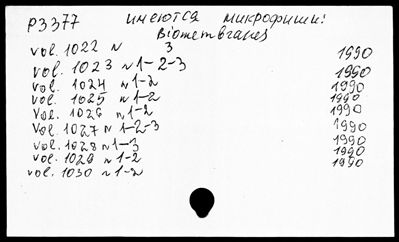 P3377 имеются микрофиши:
Biomembranes
vol. 1022 N 3 1990
vol. 1023 N 1-2-3 1990
vol. 1024 N 1-2 1990
vol. 1025 N 1-2 1990
vol. 1026 N 1-2 1990
vol. 1027 N 1-2-3 1990
vol. 1028 N 1-3 1990
vol. 1029 N 1-2 1990
vol. 1030 N 1-2 1990